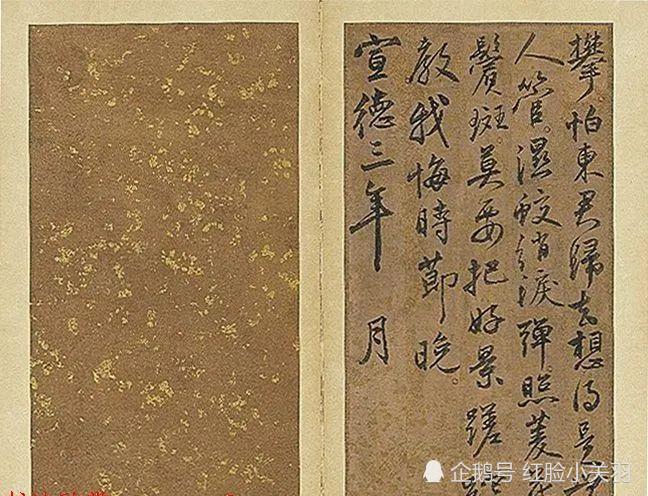 攀怕東君歸去想得是
人管濕鮫绡淚彈照菱花
鬢斑莫要把好景蹉跎
教我悔時節晚
宣德三年 月
企鹅号 红脸小关羽